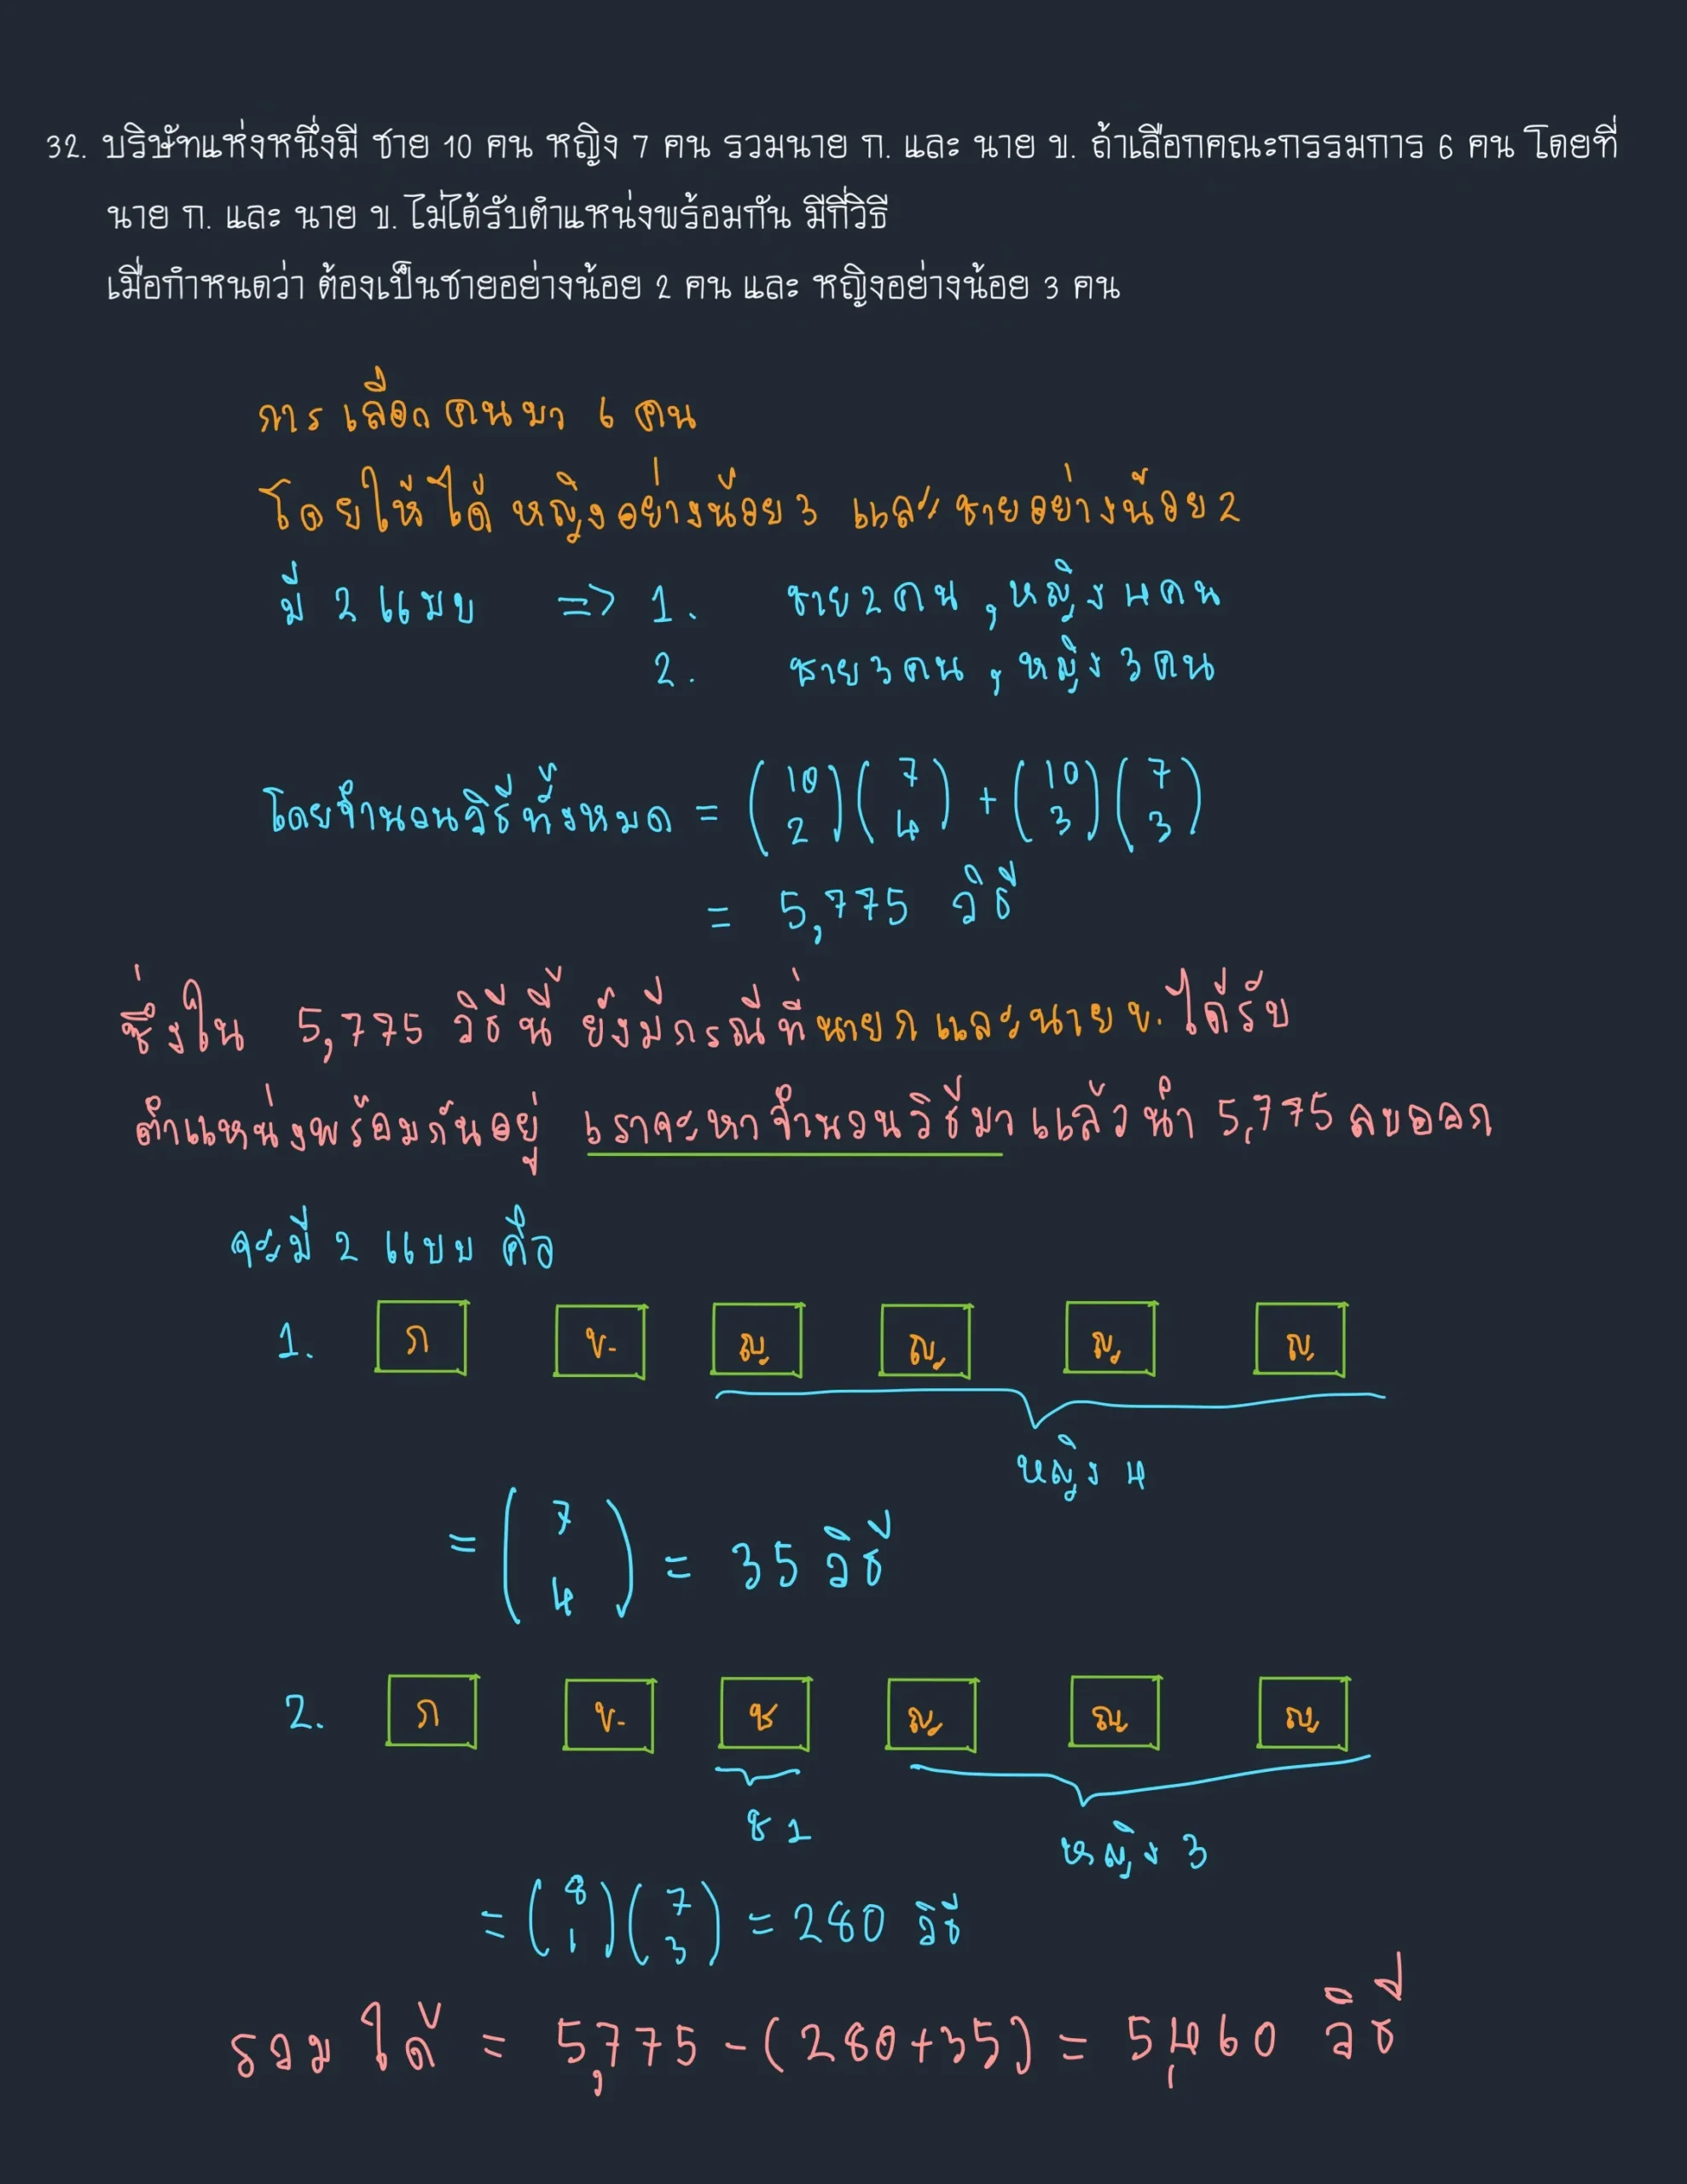 32. บริษัทแห่งหนึ่งมี ชาย 10 คน หญิง 7 คน รวมนาย ก. และ นาย ข. ถ้าเลือกคณะกรรมการ 6 คน โดยที่
นาย ก. และ นาย ข. ไม่ได้รับตำแหน่งพร้อมกัน มีกี่วิธี
เมื่อกำหนดว่า ต้องเป็นชายอย่างน้อย 2 คน และ หญิงอย่างน้อย 3 คน
การเลือกคนมา 6 คน
โดยให้ได้ หญิงอย่างน้อย 3 และ ชายอย่างน้อย 2
มี 2 แบบ => 1. ชาย 2 คน , หญิง 4 คน
2. ชาย 3 คน , หญิง 3 คน
โดยจำนวนวิธีทั้งหมด = (10 2)(7 4) + (10 3)(7 3)
= 5,775 วิธี
ซึ่งใน 5,775 วิธีนี้ ยังมีกรณีที่นาย ก และนาย ข. ได้รับ
ตำแหน่งพร้อมกันอยู่ เราจะหาจำนวนวิธีมา แล้วนำ 5,775 ลบออก
จะมี 2 แบบ คือ
1. ก ข. ญ ญ ญ ญ
หญิง 4
= (7 4) = 35 วิธี
2. ก ข. ช ญ ญ ญ
ช 1 หญิง 3
= (8 1)(7 3) = 280 วิธี
รวมได้ = 5,775 - (280+35) = 5,460 วิธี